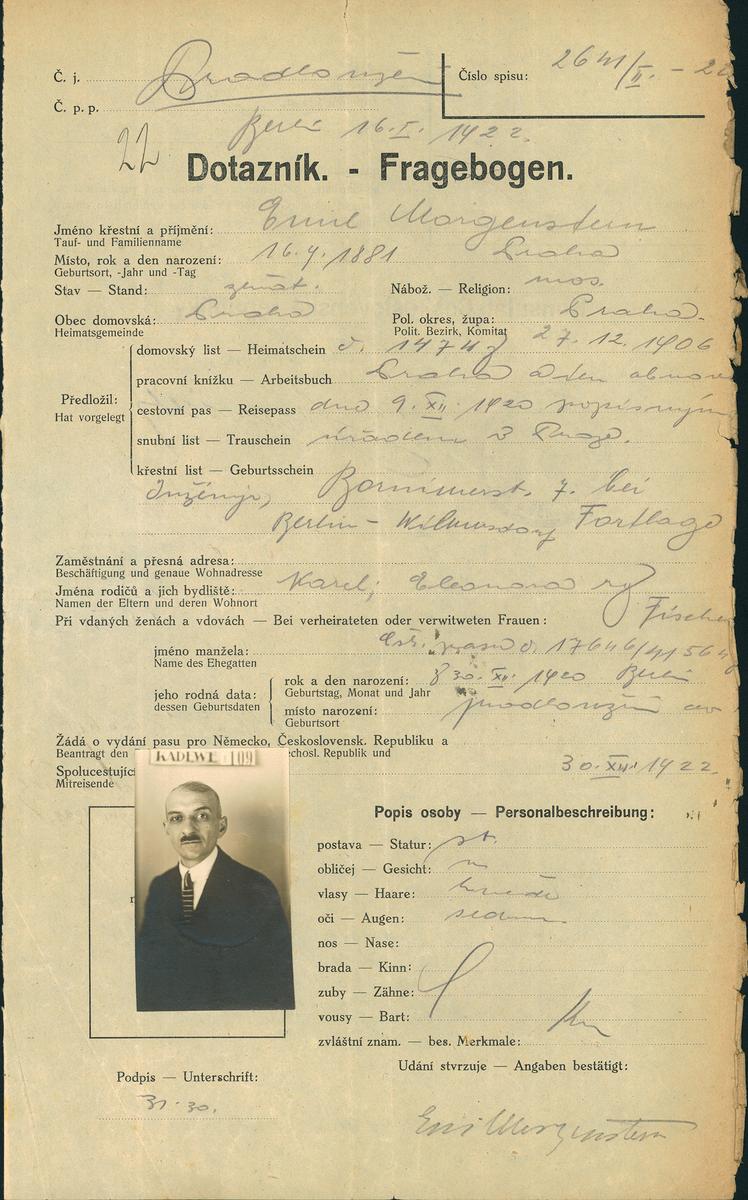 Č. j.
Číslo spisu: 2641/II. - 22
Č. p. p.
Berlin 16.I.1922.
22
Dotazník. - Fragebogen.
Jméno křestní a příjmění: Emil Morgenstern
Tauf- und Familienname
Místo, rok a den narození: 16.4.1881 Praha
Geburtsort, -Jahr und -Tag
Stav — Stand: ženat. Nábož. — Religion: mos.
Obec domovská: Praha Pol. okres, župa: Praha.
Heimatsgemeinde Polit. Bezirk, Komitat
Předložil:
Hat vorgelegt
domovský list — Heimatschein č. 14747 27.12.1906
pracovní knížku — Arbeitsbuch Praha
cestovní pas — Reisepass dne 9.XII.1920
snubní list — Trauschein úřadem v Praze.
křestní list — Geburtsschein
Inženýr, Bornimerst. 7. bei
Berlin - Wilmersdorf Fortlage
Zaměstnání a přesná adresa:
Beschäftigung und genaue Wohnadresse
Jména rodičů a jich bydliště: Karel, Eleonora
Namen der Eltern und deren Wohnort
Při vdaných ženách a vdovách — Bei verheirateten oder verwitweten Frauen: Fischer
jméno manžela:
Name des Ehegatten
jeho rodná data:
dessen Geburtsdaten
rok a den narození: 30.XII.1920 Berlin
Geburtstag, Monat und Jahr
místo narození:
Geburtsort
Žádá o vydání pasu pro Německo, Československ. Republiku a
Beantragt den echosl. Republik und
Spolucestující 30.XII.1922.
Mitreisende
KADEWE 109
Popis osoby — Personalbeschreibung:
postava — Statur: st.
obličej — Gesicht:
vlasy — Haare: hnědé
oči — Augen:
nos — Nase:
brada — Kinn:
zuby — Zähne:
vousy — Bart:
zvláštní znam. — bes. Merkmale:
Udání stvrzuje — Angaben bestätigt:
Podpis — Unterschrift:
31.30.
Emil Morgenstern